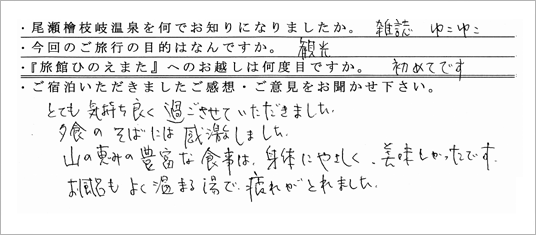 ・尾瀬檜枝岐温泉を何でお知りになりましたか。 雑誌 ゆこゆこ
・今回のご旅行の目的はなんですか。 観光
・『旅館ひのえまた』へのお越しは何度目ですか。 初めてです
・ご宿泊いただきましたご感想・ご意見をお聞かせ下さい。
とても気持ち良く過ごさせていただきました。
夕食のそばには感激しました。
山の恵みの豊富な食事は、身体にやさしく、美味しかったです。
お風呂もよく温まる湯で、疲れがとれました。